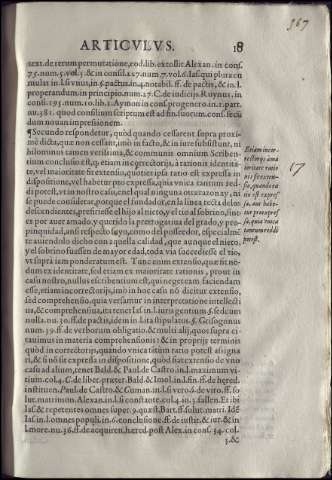 367
ARTICVLVS. 18
text. de rerum permutatione, eod. lib. extollit Alexan. in cons.
75. num. 5. vol. 5. & in consil. 127. num. 7. vol. 6. Ias. qui plura cu
mulat in l. si vnus, in §. pactus, in 4. notabil. ff. de pactis, & in l.
properandum, in principio, num. 27. C. de iudicijs. Ruynus, in
consi. 195. num. 10. lib. 1. Aymon in cons. progenero, in 2. part.
nu. 381. quod consilium scriptum est ad fin. suorum. cons. secũ
dum nouam impressionem.
¶ Secundo respondetur, quòd quando cessarent supra proxi-
mè dicta, quæ non cessant, imò in facto, & in iure subsistunt, ni
hilominus tamen verissima, & communis omnium Scriben-
tium conclusio est, q̃ etiam in correctorijs, à ratione identita-
te, vel maioritate fit extensio, quoties ipsa ratio est expressa in
dispositione, vel habetur pro expressa, quia vnica tantum red-
di potest, vt in nostro casu, en el qual ninguna otra razon ay, ni
se puede considerar, porque el fundador, en la linea recta de los
descendentes, prefiriesse el hijo a la nieto, y el tio al sobrino, sino
es por auer amado, y querido la prerrogatiua del grado, y pro-
pinquidad, ansi respecto suyo, como del posseedor, especialmẽ
te auiendolo dicho con aquella calidad, que aunque el nieto,
y el sobrino fuessen de mayor edad, toda via succediesse el tio,
vt supra iam ponderatum est. Tunc enim extensio, quæ fit nõ-
dum ex identitate, sed etiam ex maioritate rationis, prout in
casu nostro, nullus scribentium est, qui neget eam faciendam
esse, etiam in correctorijs, imò in hoc casu nõ dicitur extensio,
sed comprehensio, quia versamur in interpretatione intellecti
ua, & comprehensiua, ita tenet Ias. in l. iurisgentium §. sed cum
nulla. nu. 30. ff. de pactis, idem in l. ita stipulatus §. Grisogonus
num. 39. ff. de verborum obligatio. & multi alij, quos supra ci-
tauimus in materia comprehensionis: & in proprijs terminis
quòd in correctorijs, quando vnica tãtum ratio potest assigna
ri, & si nõ sit expressa in dispositione, quòd fiat extensio de vno
casu ad alium, tenet Bald. & Paul. de Castro in l. maximum vi-
tium. col. 4. C. de liber. præter. Bald. & Imol. in l. fin. ff. de hered.
instituen. Paul. de Castro, & Cuman. in l. si vero. §. de viro. ff. so
lut. matrimon. Alexan. in l. si constante. col. 4. in 3. fallen. Et ibi
Ias. & repetentes omnes super 9. quæst. Bart. ff. solut. matri. Idẽ
Ias. in l. omnes populi, in 6. conclusione. ff. de iustit. & iur. & in
l. more. nu. 36. ff. de acquiren. hered. post Alex. in cons. 34. col-
3. &
Etiam in cor-
rectorijs à ma
ioritate ratio
nis fit extensio,
17